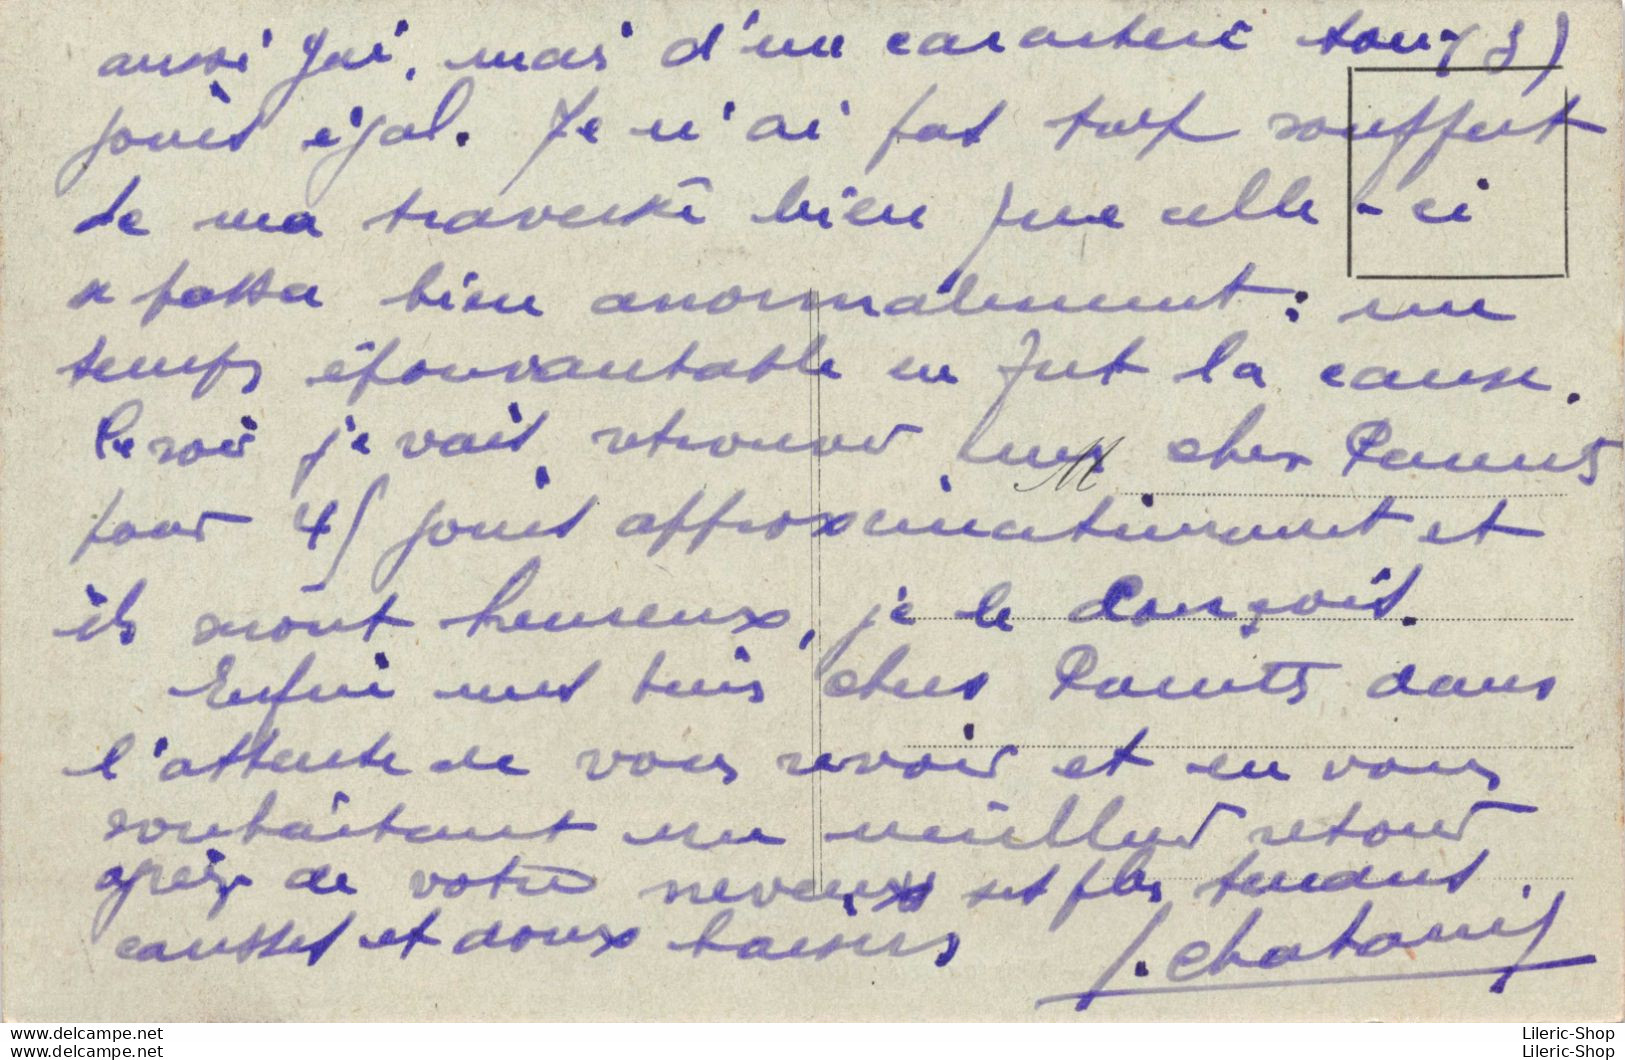 aussi gai, mais d'un caractère touj
jours égal. Je n'ai pas trop souffert
de ma traversée bien que celle-ci
se passa bien anormalement : un
temps épouvantable en fut la cause.
Ce soir je vais retrouver mes chers Parents
pour 45 jours approximativement et
ils seront heureux, je le conçois.
Enfin mes biens chers Parents dans
l'attente de vous revoir et en vous
souhaitant un meilleur retour
après de votre neveux ses plus tendres
causses et doux baisers
M
delcampe.net
delcampe.net
Lileric-Shop
Lileric-Shop